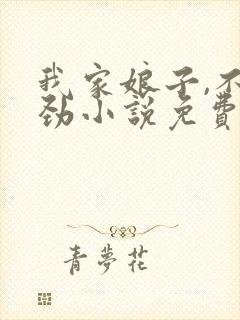 我家娘子,不
劲小說免費
青夢花